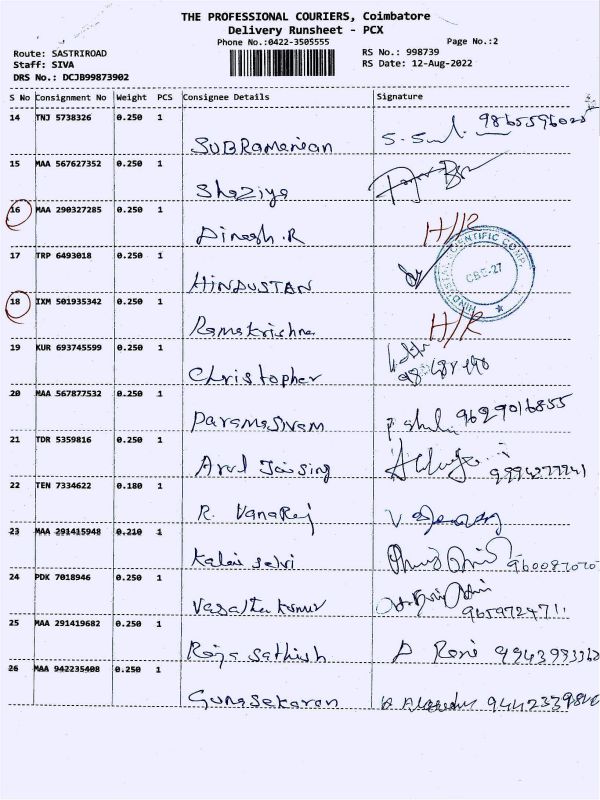 THE PROFESSIONAL COURIERS, Coimbatore
Delivery Runsheet - PCX
Phone No.:0422-3505555
Page No.:2
Route: SASTRIROAD
Staff: SIVA
DRS No.: DCJB99873902
RS No.: 998739
RS Date: 12-Aug-2022
S No Consignment No Weight PCS Consignee Details Signature
14 TNJ 5738326 0.250 1
SUBRamanian
15 MAA 567627352 0.250 1
Shaziya
16 MAA 290327285 0.250 1
Dinesh.R H/R
17 TRP 6493018 0.250 1
HINDUSTAN
CBE-27
18 IXM 501935342 0.250 1
Ramakrishna H/R
19 KUR 693745599 0.250 1
Christopher
20 MAA 567877532 0.250 1
Paramasivam 9629016855
21 TDR 5359816 0.250 1
Arul Jaising 9994277241
22 TEN 7334622 0.180 1
R. Vanaraj
23 MAA 291415948 0.210 1
Kalai selvi
24 PDK 7018946 0.250 1
Vasantha kumar
25 MAA 291419682 0.250 1
Raja sathish
26 MAA 942235408 0.250 1
Gunasekaran